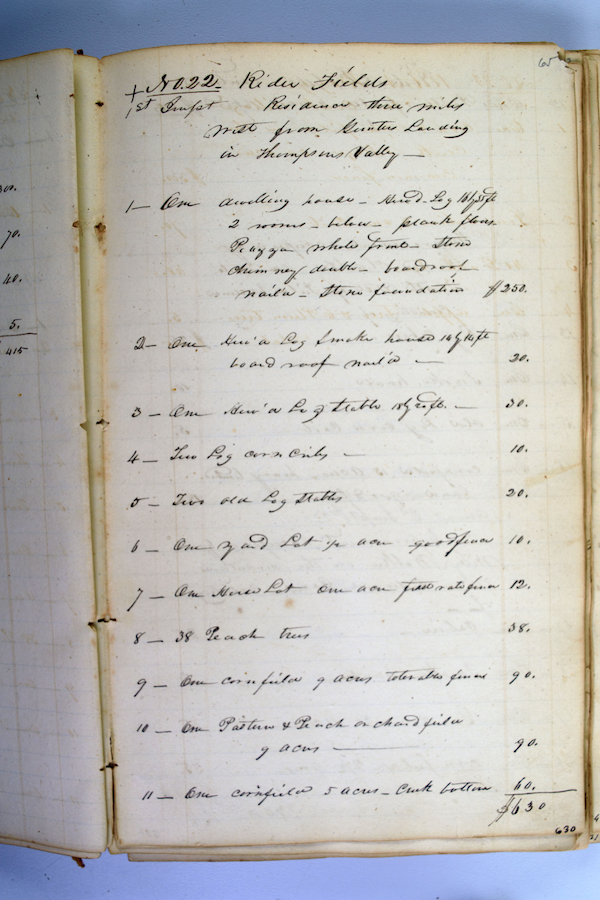 65
+ No. 22. Rider Fields
1st Impt Residence three miles
west from Gunters Landing
in Thompsons Valley —
1 — One dwelling house — Hew'd Log 16 by
2 rooms — below — plank floor
Piazza whole front — Stone
chimney double — board roof
nail'd — Stone foundation $250.
2 — One Hew'd Log Smoke house 14 by 14 ft
board roof nail'd — 20.
3 — One Hew'd Log Stable 18 by 20 ft. — 30.
4 — Two Log corn cribs — 10.
5 — Two old Log Stables 20.
6 — One yard Lot ½ acre good fence 10.
7 — One Horse Lot one acre first rate fence 12.
8 — 38 Peach trees 38.
9 — One cornfield 9 acres tolerable fence 90.
10 — One Pasture & Peach orchard field
9 acres — 90.
11 — One cornfield 5 acres — Creek bottom 60.
$630
630
70.
40.
5.
415